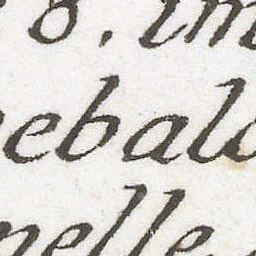 8. im
ebald
nelle